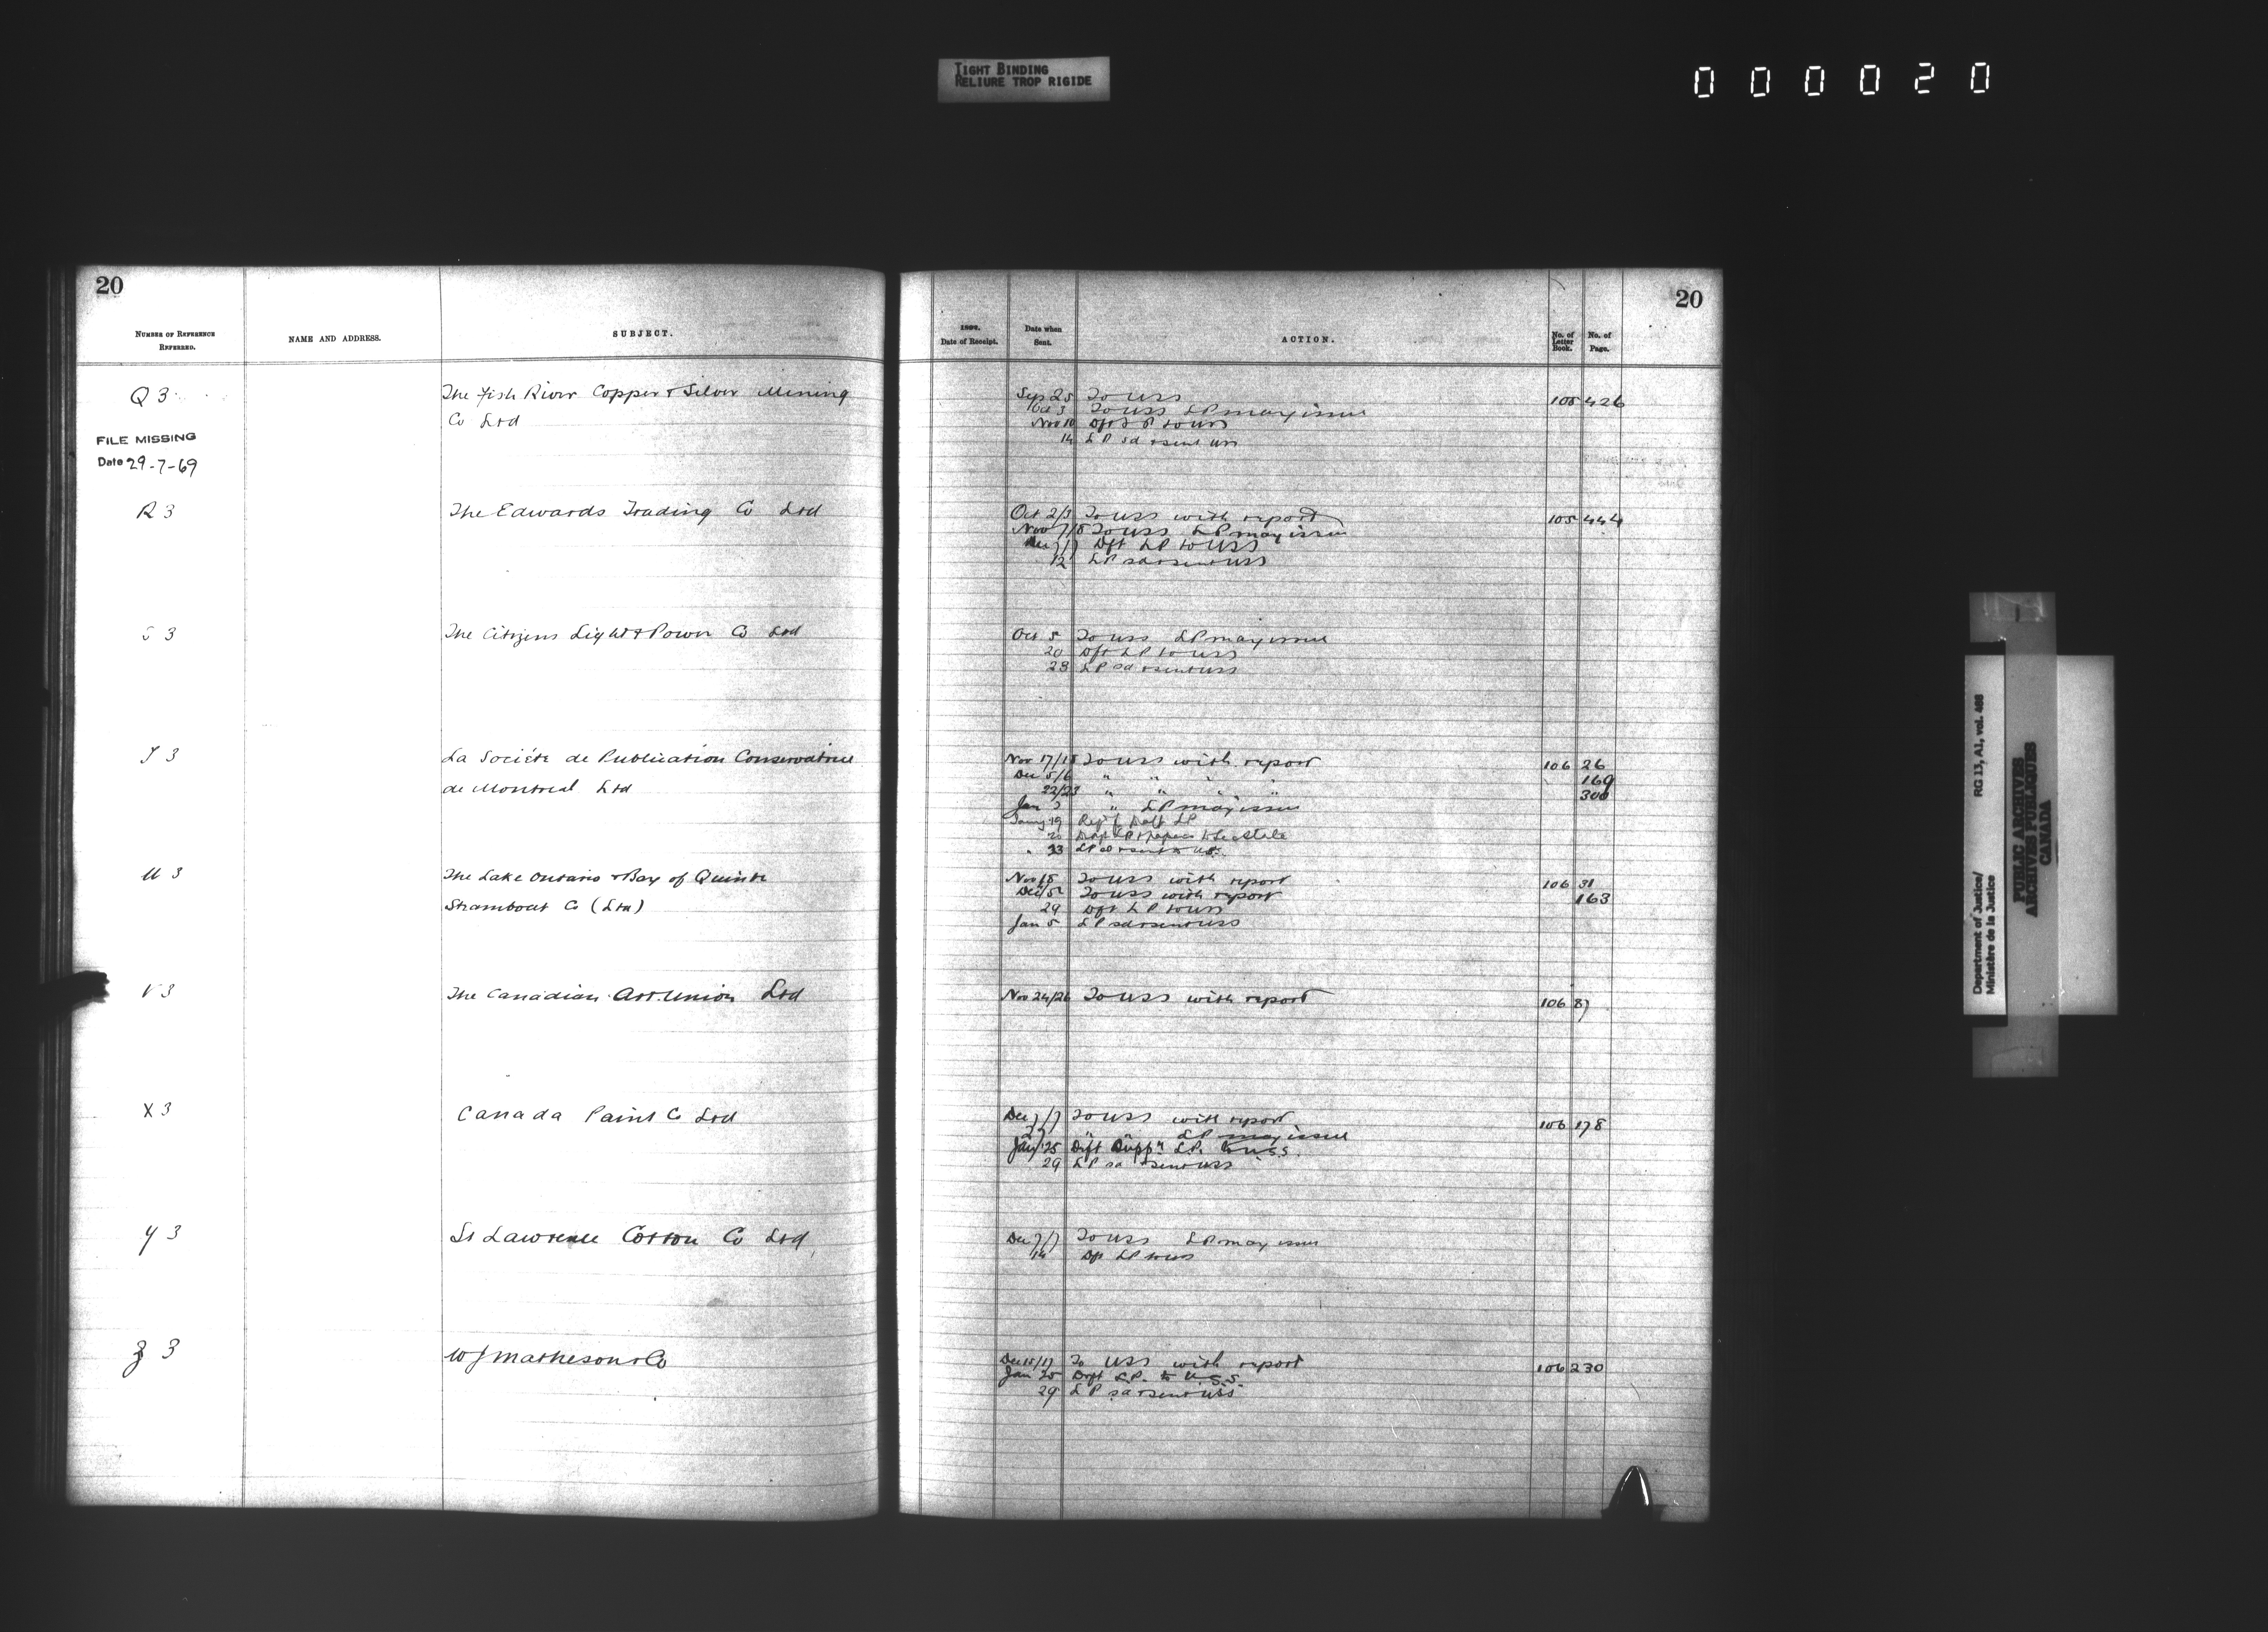 TIGHT BINDING
RELIURE TROP RIGIDE
000020
20
NUMBER OF REFERENCE
REFERRED.
NAME AND ADDRESS.
SUBJECT.
Q 3
The Fish River Copper & Silver Mining
Co Ltd
FILE MISSING
Date 29-7-69
R 3
The Edwards Trading Co Ltd
S 3
The Citizens Light & Power Co Ltd
T 3
La Société de Publication Conservatrice
de Montreal Ltd
U 3
The Lake Ontario & Bay of Quinte
Steamboat Co (Ltd)
V 3
The Canadian Art Union Ltd
X 3
Canada Paint Co Ltd
Y 3
St Lawrence Cotton Co Ltd
Z 3
W J Matheson & Co
20
189
Date of Receipt.
Date when
Sent.
ACTION.
No. of
Letter
Book.
No. of
Page.
Sep 25 To USS 105 426
Oct 3 To USS LP may issue
Nov 10 Dft LP to USS
14 LP sd & sent USS
Oct 2/3 To USS with report 105 444
Nov 7/8 To USS LP may issue
Dec 7/7 Dft LP to USS
12 LP sd & sent USS
Oct 5 To USS LP may issue
20 Dft LP to USS
28 LP sd & sent USS
Nov 17/18 To USS with report 106 26
Dec 5/6 " " " " 169
22/23 " " " " 300
Jan 3 " LP may issue
19 Draft LP
20 Draft LP & papers to Sec State
" 23 LP sd & sent to U.S.
Nov 18 To USS with report 106 31
Dec 5 To USS with report 163
29 Dft LP to USS
Jan 5 LP sd & sent USS
Nov 24/26 To USS with report 106 87
Dec 7/7 To USS with report 106 178
27 " LP may issue
Jany 25 Dift Supp" LP. to U.S.S.
29 LP sd & sent USS
Dec 7/7 To USS LP may issue
14 Dft LP to USS
Dec 15/17 To USS with report 106 230
Jan 25 Drft L.P. to U.S.S.
29 LP sd & sent USS
Department of Justice/ RG 13, A1, vol. 488
Ministère de la Justice
PUBLIC ARCHIVES
ARCHIVES PUBLIQUES
CANADA